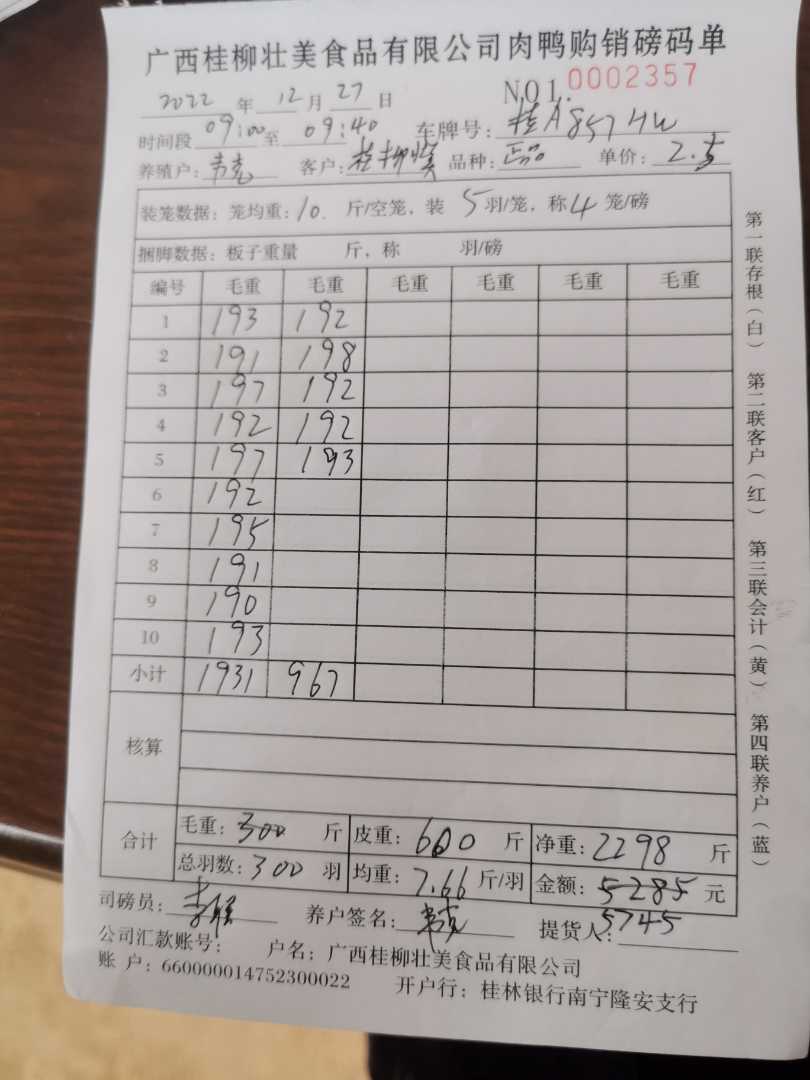 广西桂柳壮美食品有限公司肉鸭购销磅码单
2022 年 12 月 27 日 NO1. 0002357
时间段 09:00 至 09:40 车牌号: 桂A857HW
养殖户: 韦克 客户: 桂柳 品种: 正品 单价: 2.5
装笼数据: 笼均重: 10. 斤/空笼, 装 5 羽/笼, 称 4 笼/磅
捆脚数据: 板子重量 斤, 称 羽/磅
编号 毛重 毛重 毛重 毛重 毛重 毛重
1 193 192
2 191 198
3 197 192
4 192 192
5 197 193
6 192
7 195
8 191
9 190
10 193
小计 1931 967
核算
合计 毛重: 300 斤 皮重: 600 斤 净重: 2298 斤
总羽数: 300 羽 均重: 7.66 斤/羽 金额: 5285 元
5745
司磅员: 养户签名: 韦克 提货人:
公司汇款账号: 户名: 广西桂柳壮美食品有限公司
账 户: 660000014752300022 开户行: 桂林银行南宁隆安支行
第一联存根(白) 第二联客户(红) 第三联会计(黄) 第四联养户(蓝)